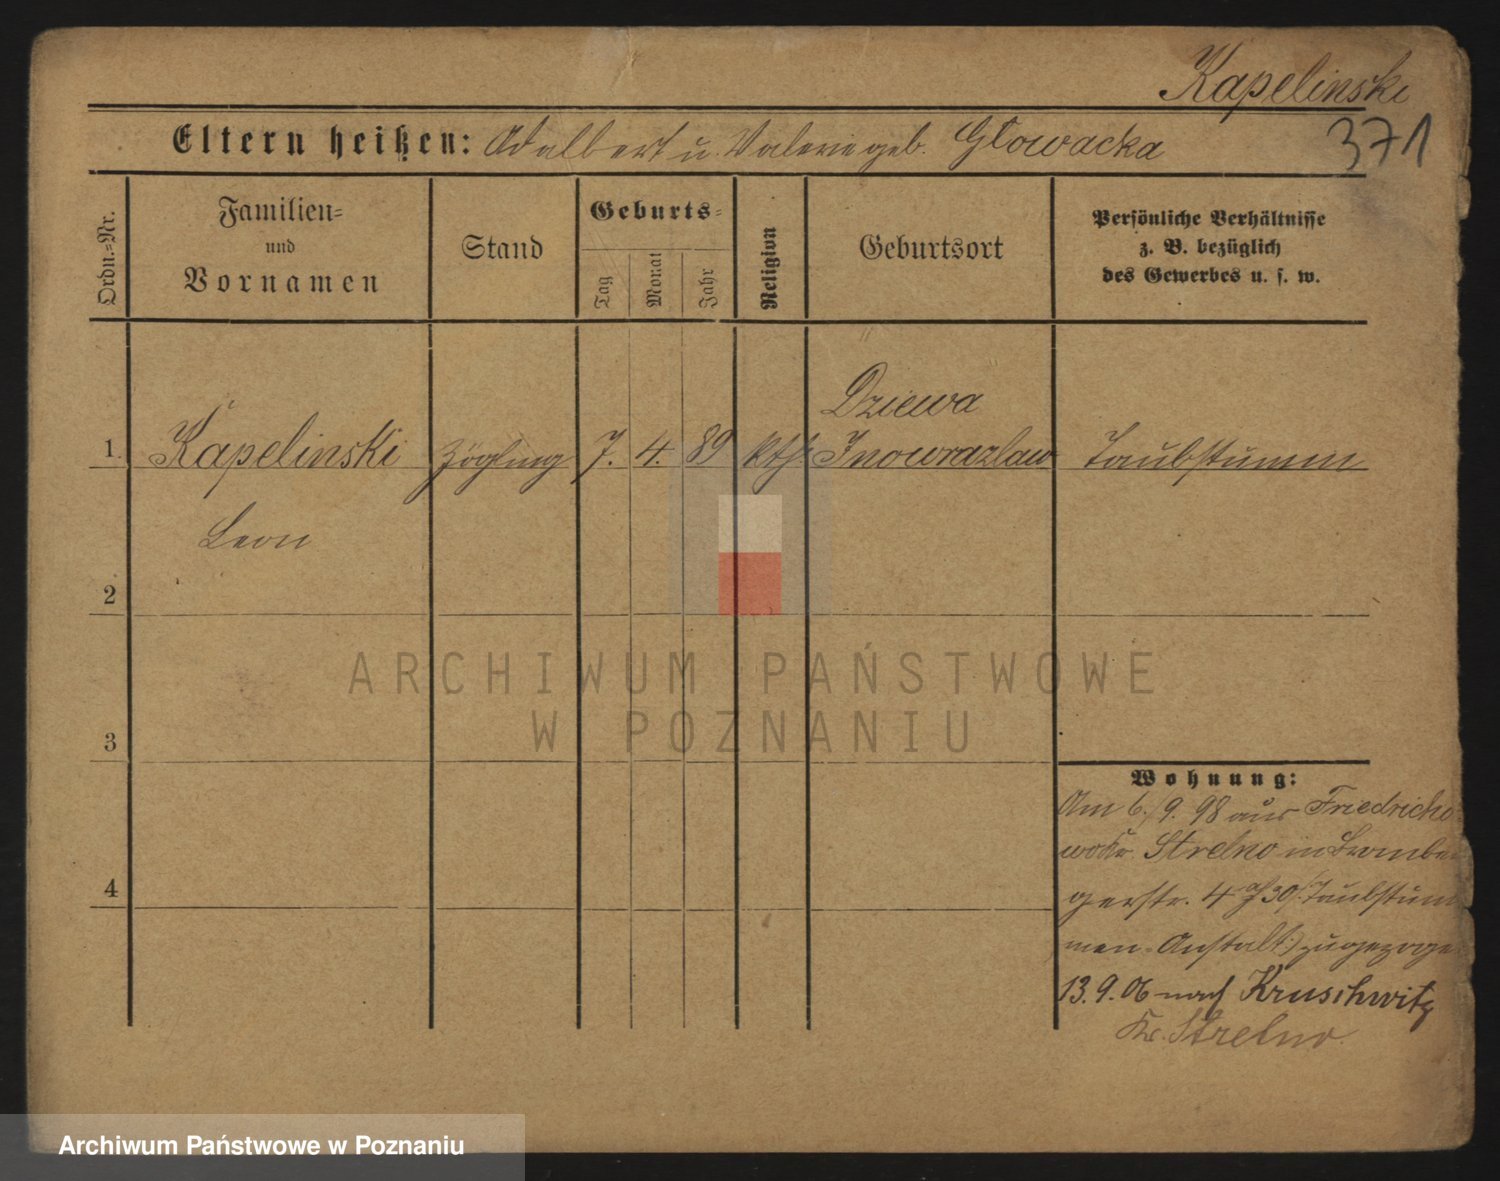 Kapelinski
371
Eltern heißen: Adalbert u. Valerie geb. Głowacka
Ordn.-Nr.
Familien-
und
Vornamen
Stand
Geburts-
Tag
Monat
Jahr
Religion
Geburtsort
Persönliche Verhältnisse
z. B. bezüglich
des Gewerbes u. s. w.
Dziewa
1. Kapelinski Zögling 7. 4. 89 kth Inowrazlaw Taubstumm
Leon
2
3
4
ARCHIWUM PAŃSTWOWE
W POZNANIU
Wohnung:
Am 6./9. 98 aus Friedrichs
Kr. Strelno in Brombe
gerstr. 4 30/ Taubstum
men-Anstalt:/ zugezoge
13.9.06 nach Kruschwitz
Kr. Strelno.
Archiwum Państwowe w Poznaniu